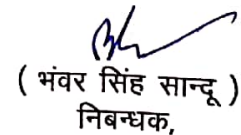 ( भंवर सिंह सान्दू )
निबन्धक,